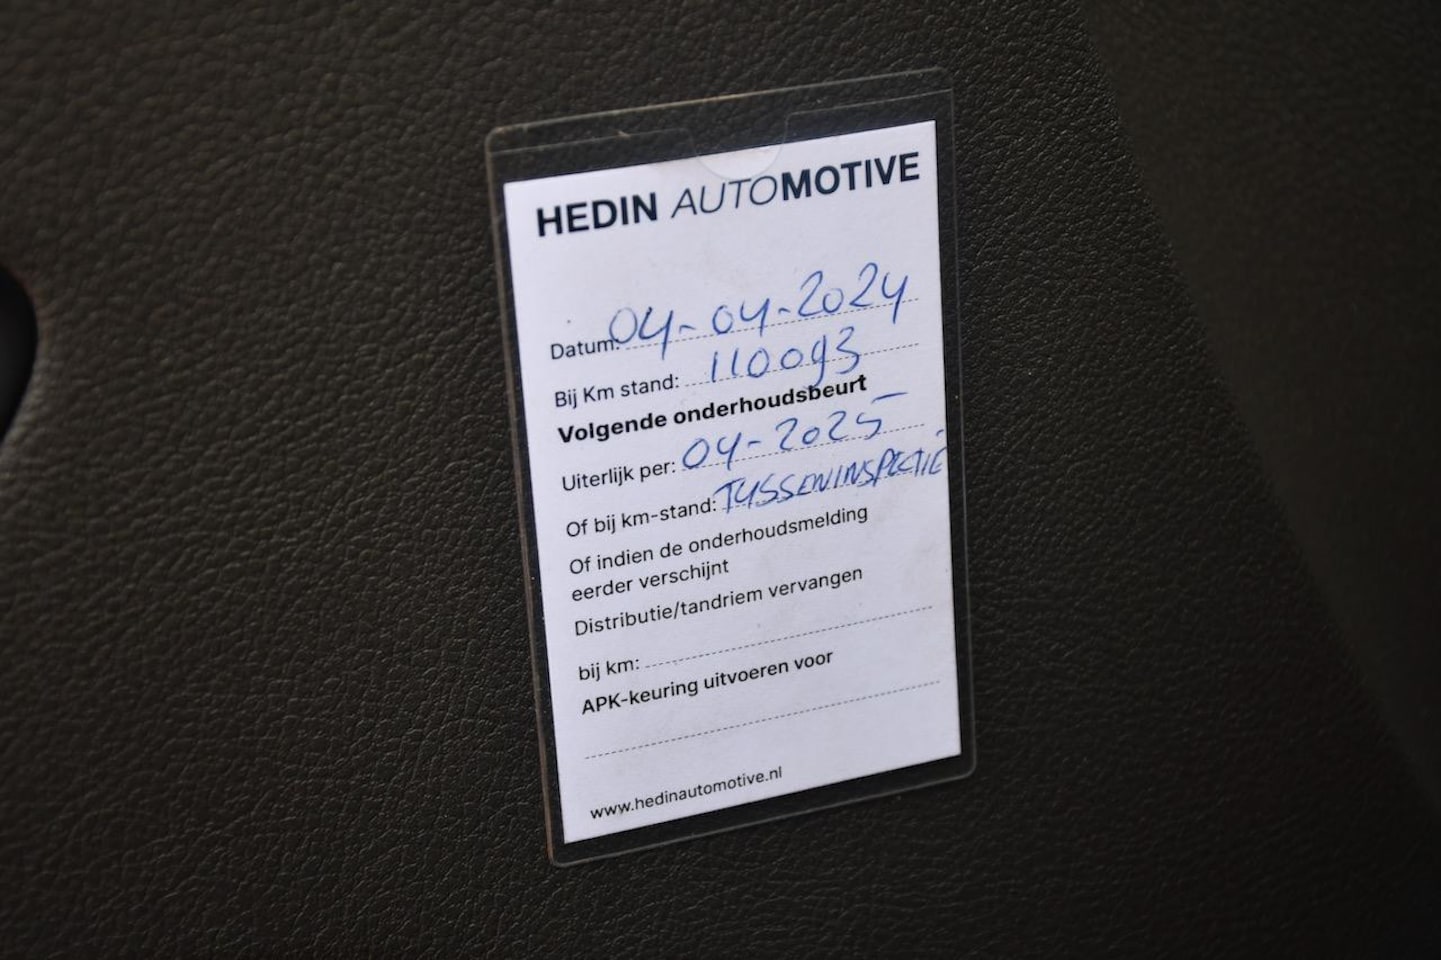 HEDIN AUTOMOTIVE
Datum: 04-04-2024
Bij Km stand: 110093
Volgende onderhoudsbeurt
Uiterlijk per: 04-2025
Of bij km-stand: TUSSENINSPECTIE
Of indien de onderhoudsmelding
eerder verschijnt
Distributie/tandriem vervangen
bij km:
APK-keuring uitvoeren voor
www.hedinautomotive.nl